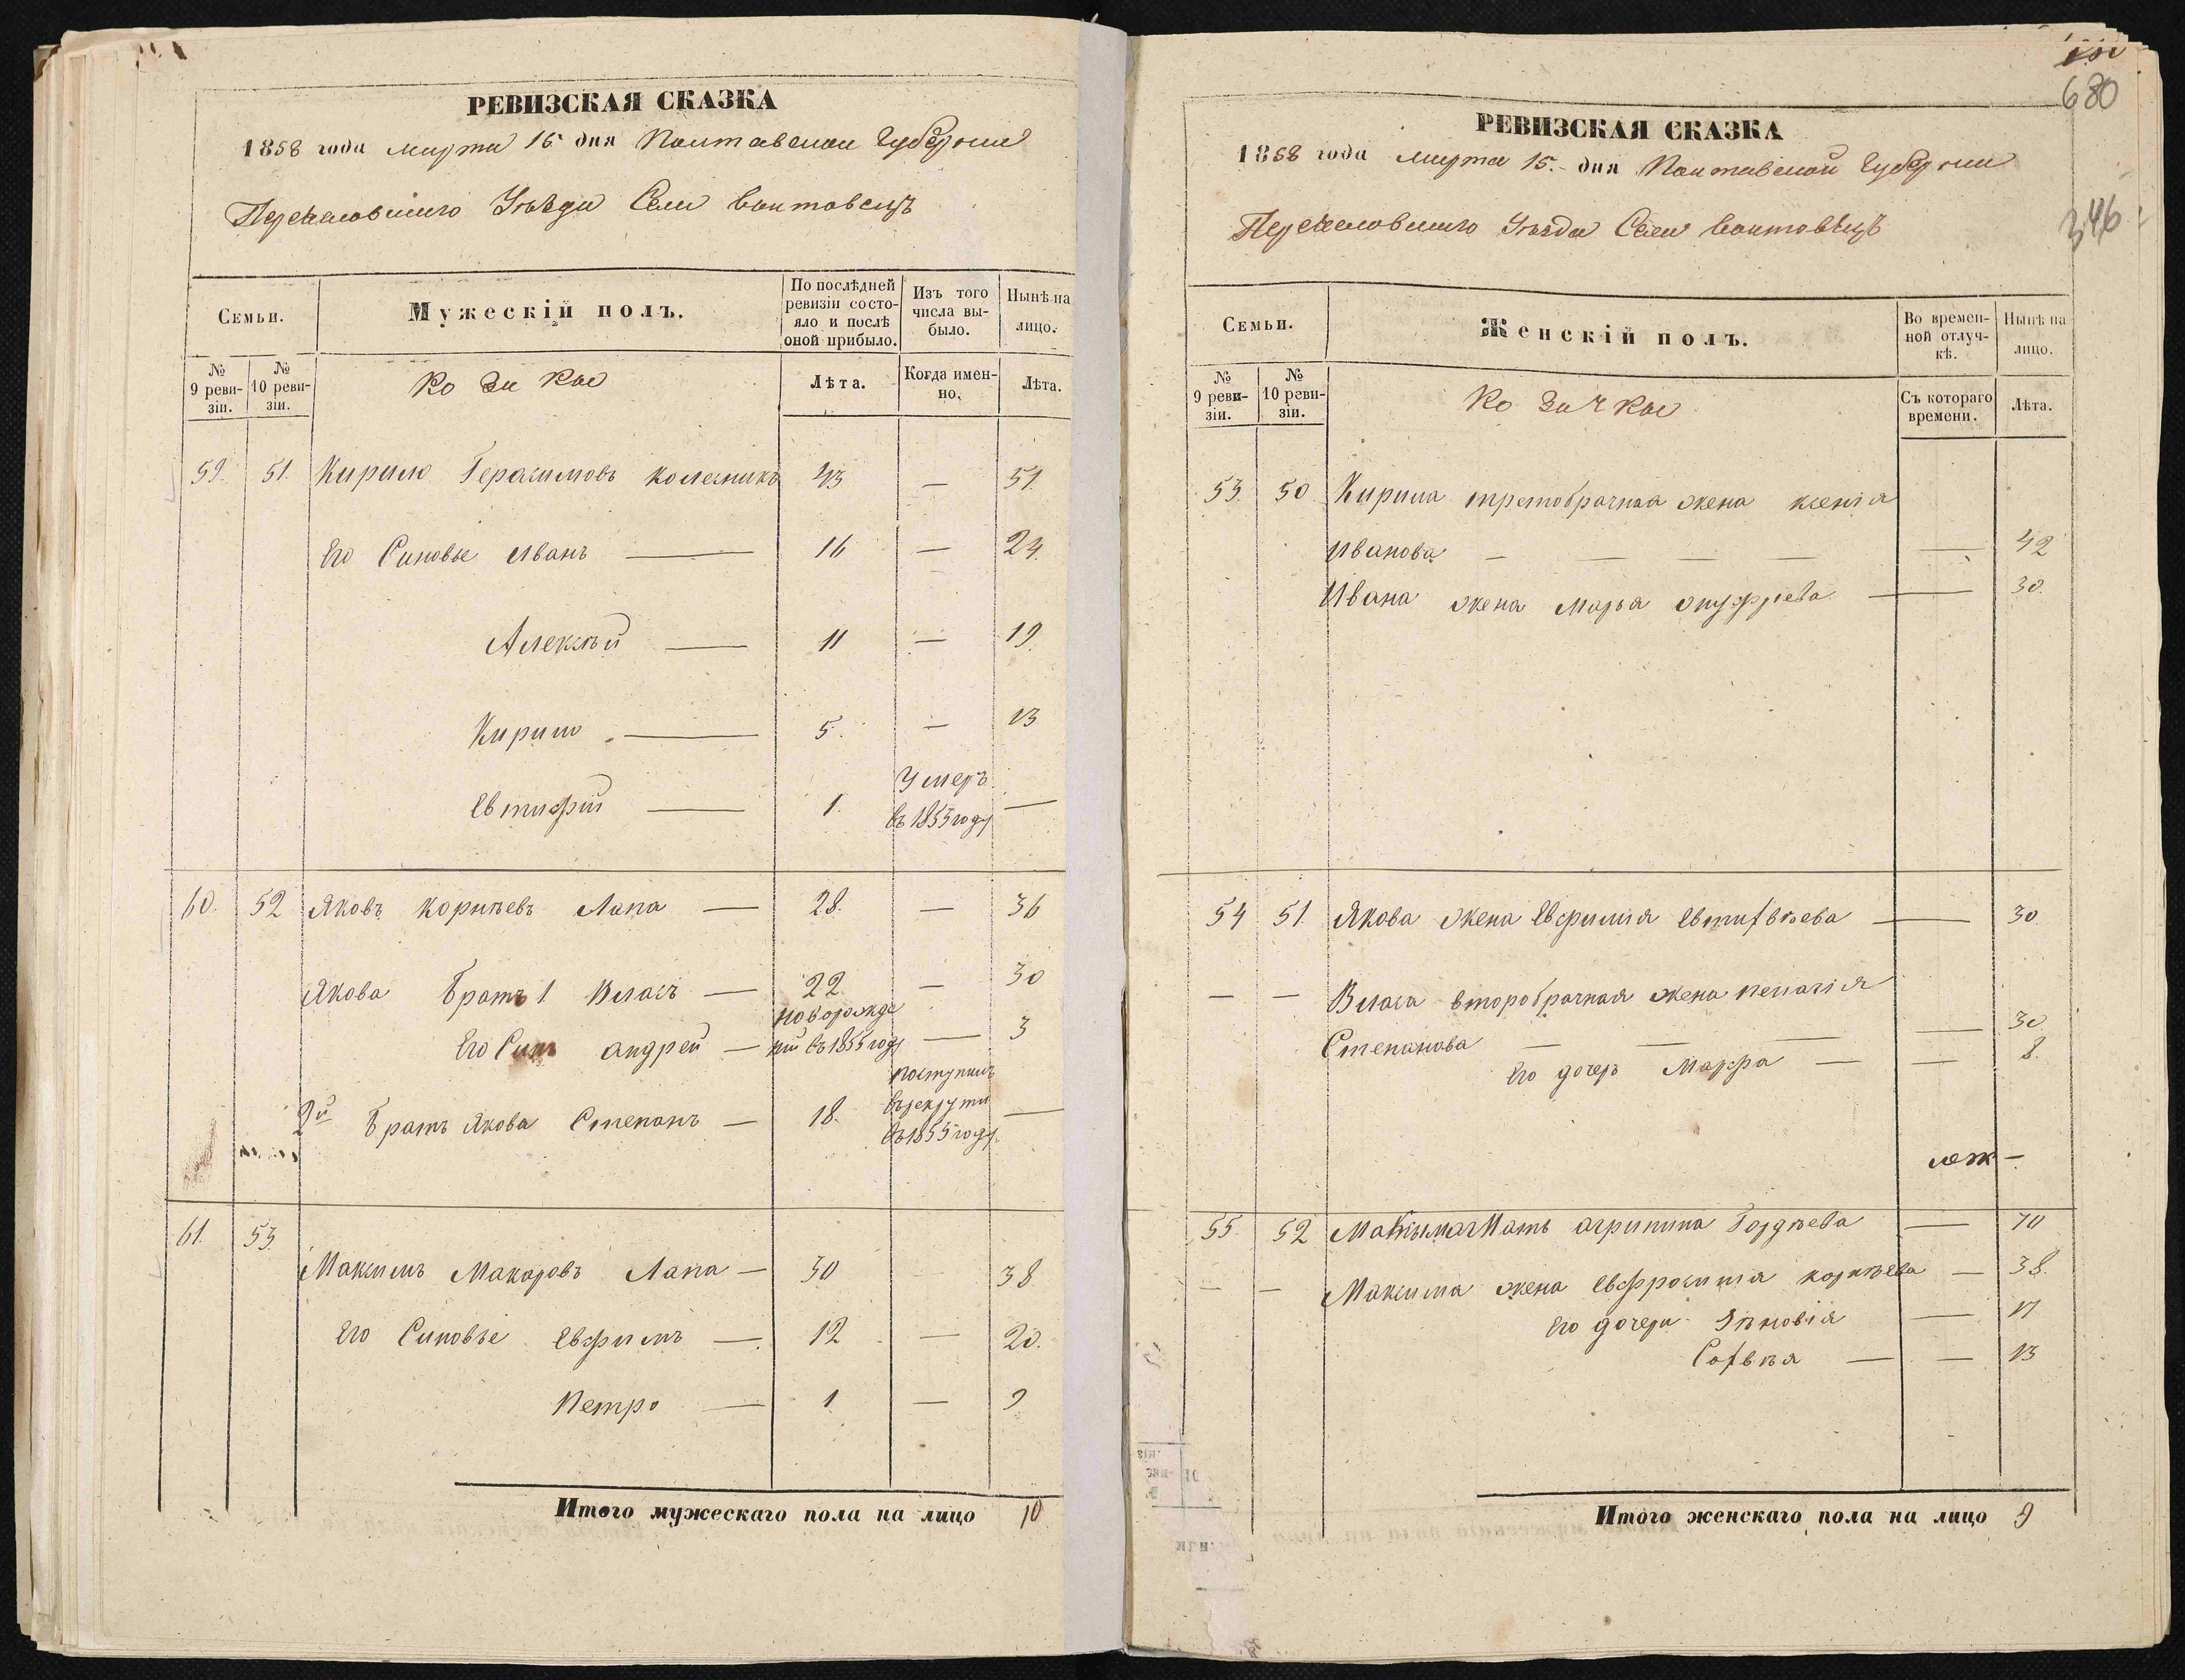 РЕВИЗСКАЯ СКАЗКА
1858 года марта 15 дня Полтавской Губернии
Переяловского Уѣзда Села Войтовецъ
Семьи.
Мужескій полъ.
По послѣдней ревизіи состояло и послѣ оной прибыло.
Изъ того числа выбыло.
Нынѣ на лицо.
№ 9 ревизіи.
№ 10 ревизіи.
Козаки
Лѣта.
Когда именно.
Лѣта.
59. 51. Кирило Герасимовъ колесникъ 43 — 51.
Его Синовье Иванъ — 16 — 24.
Алексѣй — 11 — 19.
Кирило — 5. — 13
Евтифій — 1. Умеръ въ 1855 году —
60. 52 Яковъ Корнѣевъ Лапа — 28. — 36
Якова Братъ 1 Власъ — 22 — 30
Его Синъ андрей — новорожде ній въ 1855 году — 3
2й Братъ Якова Степанъ — 18. поступилъ върекрути въ 1855 году. —
61. 53. Максимъ Макаровъ Лапа — 30 38
Его Синовье Евфимъ — 12 — 20.
Петро — 1 — 9
Итого мужескаго пола на лицо 10
680
346
РЕВИЗСКАЯ СКАЗКА
1858 года марта 15. дня Полтавской Губернии
Переяловского Уѣзда Села Войтовѣцъ
Семьи.
Женскій полъ.
Во временной отлучкѣ.
Нынѣ на лицо.
№ 9 ревизіи.
№ 10 ревизіи.
Козачки
Съ котораго времени.
Лѣта.
53. 50. Кирила третобрачная жена ксенія
Иванова — — — — — 42
Ивана жена Марья онуфріева — 30.
54 51. Якова жена Евфимія Евтифѣева — 30
— — Власа второбрачная жена пелагія
Степанова — — — — 30
Его дочерь Марфа — — 8.
55. 52 Максыма Мать агрипина Гордѣева — 70
— — Максима жена Евфросинія корнѣева — 38.
Его дочери Зѣновія — 17
Софѣя — — 13
Итого женскаго пола на лицо 9